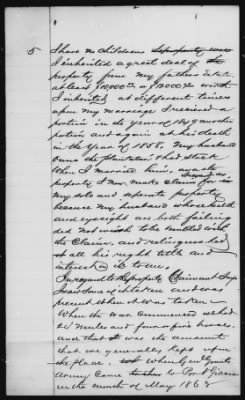 5 I have no children
I inherited a great deal of the
property from my fathers Estate.
at least $10,000.00 or 12000.00 worth
I inherited at different times
upon my marriage I received a
portion in the year of 1849
portion and again at his death
in the Year of 1858. My husband
owns the plantation that stock
When I married him,
property of Mr. Mc
my sole and separate property
because my husband whose health
and eyesight are both failing
did not wish to be troubled with
the Claim. and relinquished
all his right title and
interest in it to me.
In regard to the property Claimed and
I saw some of it taken and was
present when it was taken
When the war commenced we had
mules and four or five horses.
and that was the amount
that we generally kept upon
the place. When Genl Grants
Army came to Port Gibson
in the month of May 1863